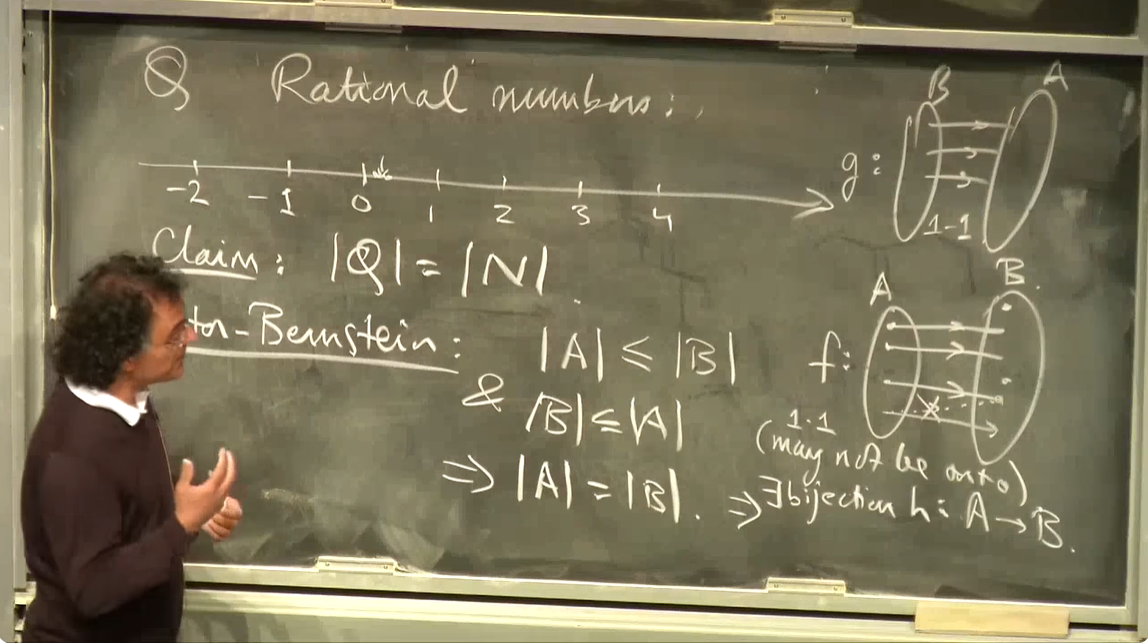 Q Rational numbers:
-2 -1 0 1 2 3 4
Claim: |Q| = |N|.
-Bernstein: |A| ≤ |B|
& |B| ≤ |A|
⇒ |A| = |B|.
B A
g:
1-1
A B.
f:
1-1
(may not be onto)
⇒ ∃ bijection h: A → B.